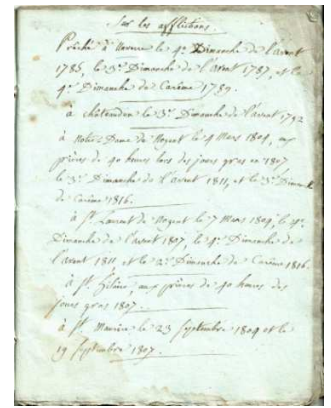 Sur les afflictions.
Prêché à le 4e Dimanche de l'avent
1785, le 3e Dimanche de l'avent 1787, et le
4e Dimanche de Carême 1789.
à le 3e Dimanche de l'avent 1792
à Notre-Dame de Nogent le 4 Mars 1804, aux
prières de 40 heures lors des jours gras en 1807
le 3e Dimanche de l'avent 1811, et le 3e Dimanche
de Carême 1816.
à St Laurent de Nogent le 7 Mars 1804, le 4e
Dimanche de l'avent 1807, le 4e Dimanche de
l'avent 1811 et le 2e Dimanche de Carême 1816.
à St. Hilaire, aux prières de 40 heures des
jours gras 1807.
à St. Maurice le 23 Septembre 1804 et le
19 Septembre 1807.